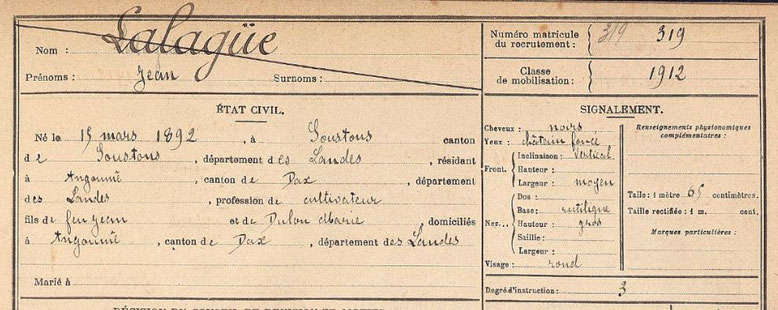 Nom : Lalagüe
Prénoms : Jean Surnoms :
Numéro matricule du recrutement : 319 319
Classe de mobilisation : 1912
ÉTAT CIVIL.
Né le 15 mars 1892, à Soustons canton
de Soustons, département des Landes, résidant
à Angoumé, canton de Dax, département
des Landes, profession de cultivateur
fils de feu Jean et de Dulon Marie, domiciliés
à Angoumé, canton de Dax, département des Landes
Marié à
SIGNALEMENT.
Cheveux : noirs
Yeux : châtain foncé
Front. Inclinaison : vertical
Hauteur :
Largeur : moyen
Nez... Dos :
Base : rectiligne
Hauteur : gros
Saillie :
Largeur :
Visage : rond
Renseignements physionomiques
complémentaires :
Taille : 1 mètre 65 centimètres.
Taille rectifiée : 1 m. cent.
Marques particulières :
Degré d'instruction : 3